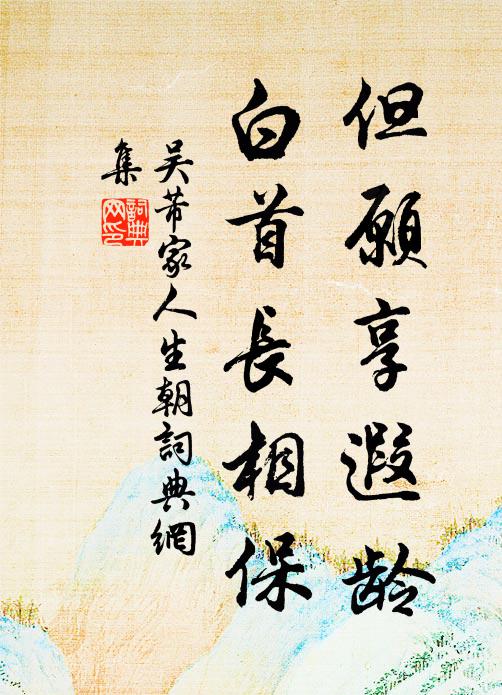 但願享遐龄
白首長相保
吴芾家人生朝詞典網
集
詞典
网印